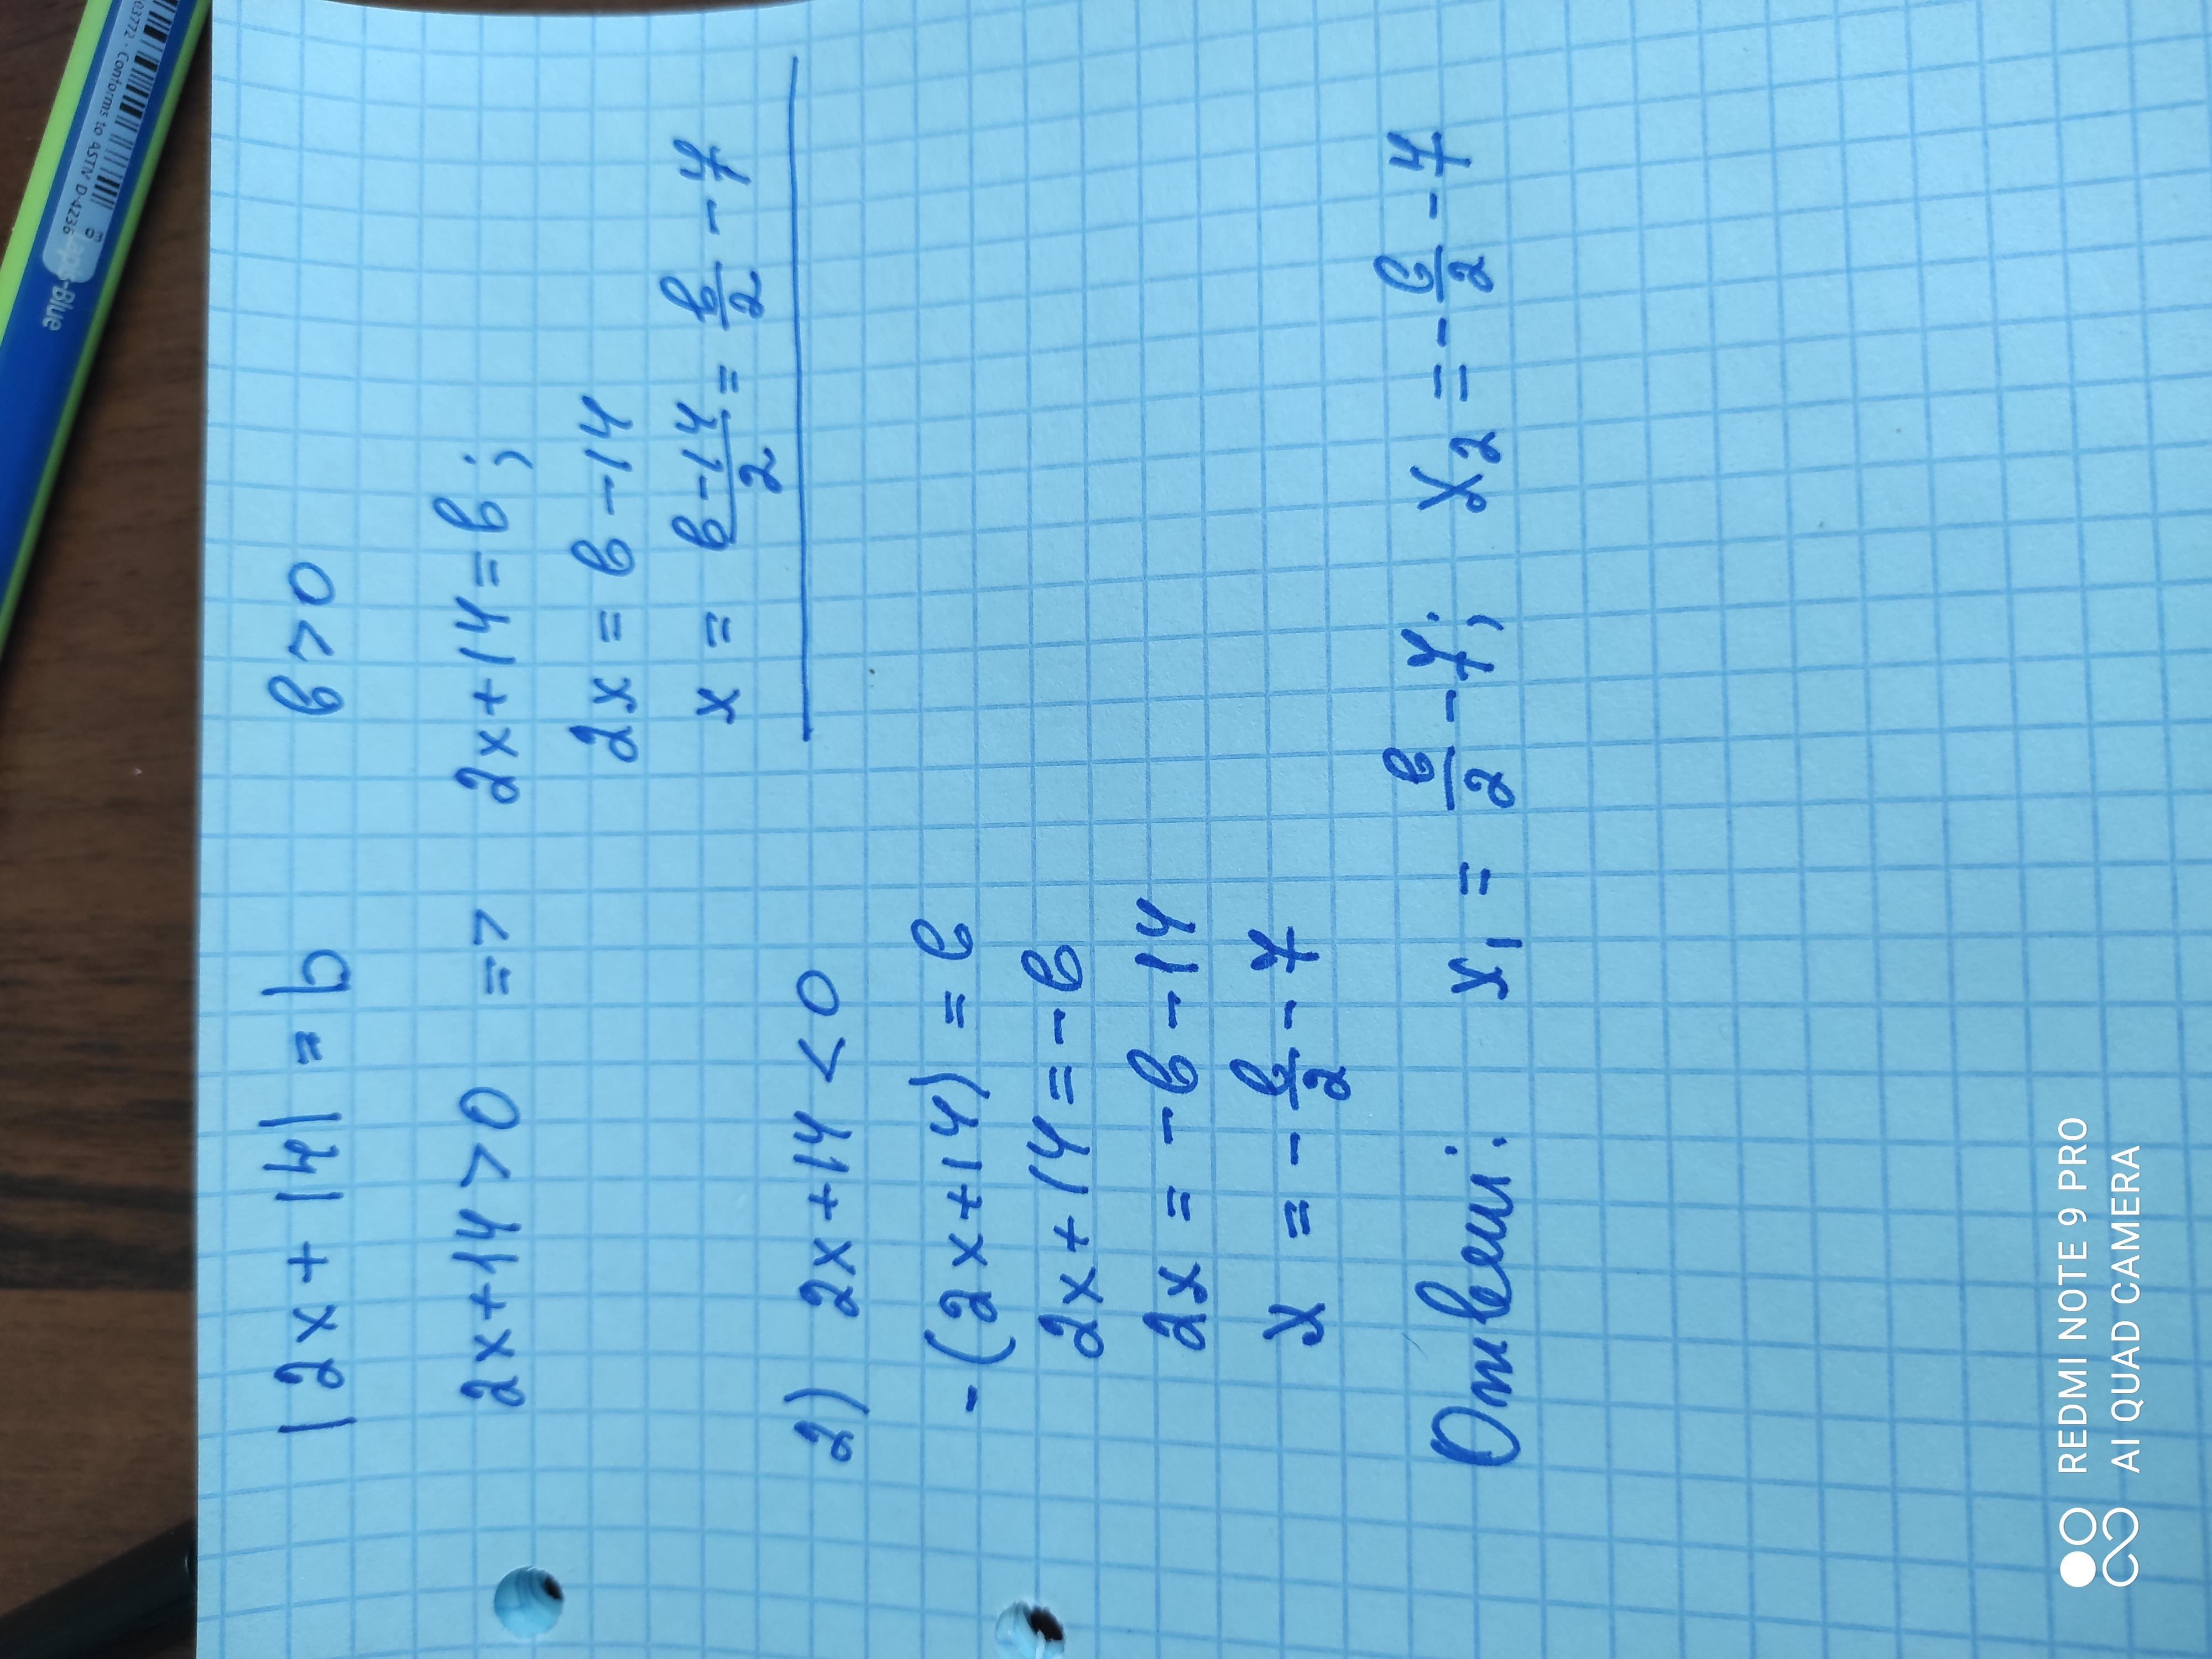 |2x + 14| = b   в > 0
2x+14>0 => 2x+14=в;
2x = в - 14
x = в-14/2 = в/2 - 7
2) 2x+14 < 0
-(2x+14) = в
2x+14 = -в
2x = -в - 14
x = -в/2 - 7
Ответ: x₁ = в/2 - 7; x₂ = -в/2 - 7
0372 - Conforms to ASTM D-4236
aps-Blue
REDMI NOTE 9 PRO
AI QUAD CAMERA